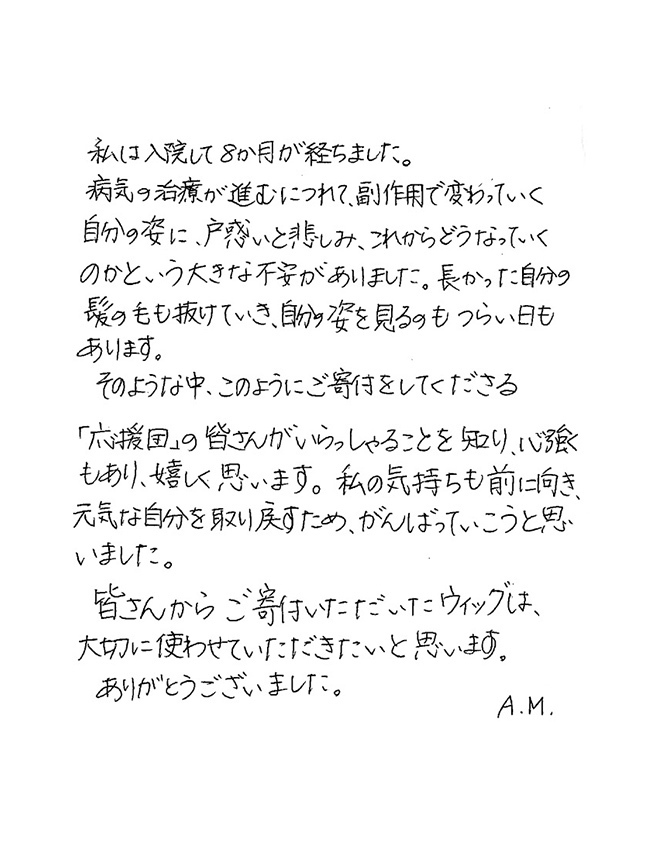 私は入院して8か月が経ちました。
病気の治療が進むにつれて、副作用で変わっていく
自分の姿に、戸惑いと悲しみ、これからどうなっていく
のかという大きな不安がありました。長かった自分の
髪の毛も抜けていき、自分の姿を見るのもつらい日も
あります。
そのような中、このようにご寄付をしてくださる
「応援団」の皆さんがいらっしゃることを知り、心強く
もあり、嬉しく思います。私の気持ちも前に向き、
元気な自分を取り戻すため、がんばっていこうと思
いました。
皆さんからご寄付いただいたウィッグは、
大切に使わせていただきたいと思います。
ありがとうございました。
A.M.